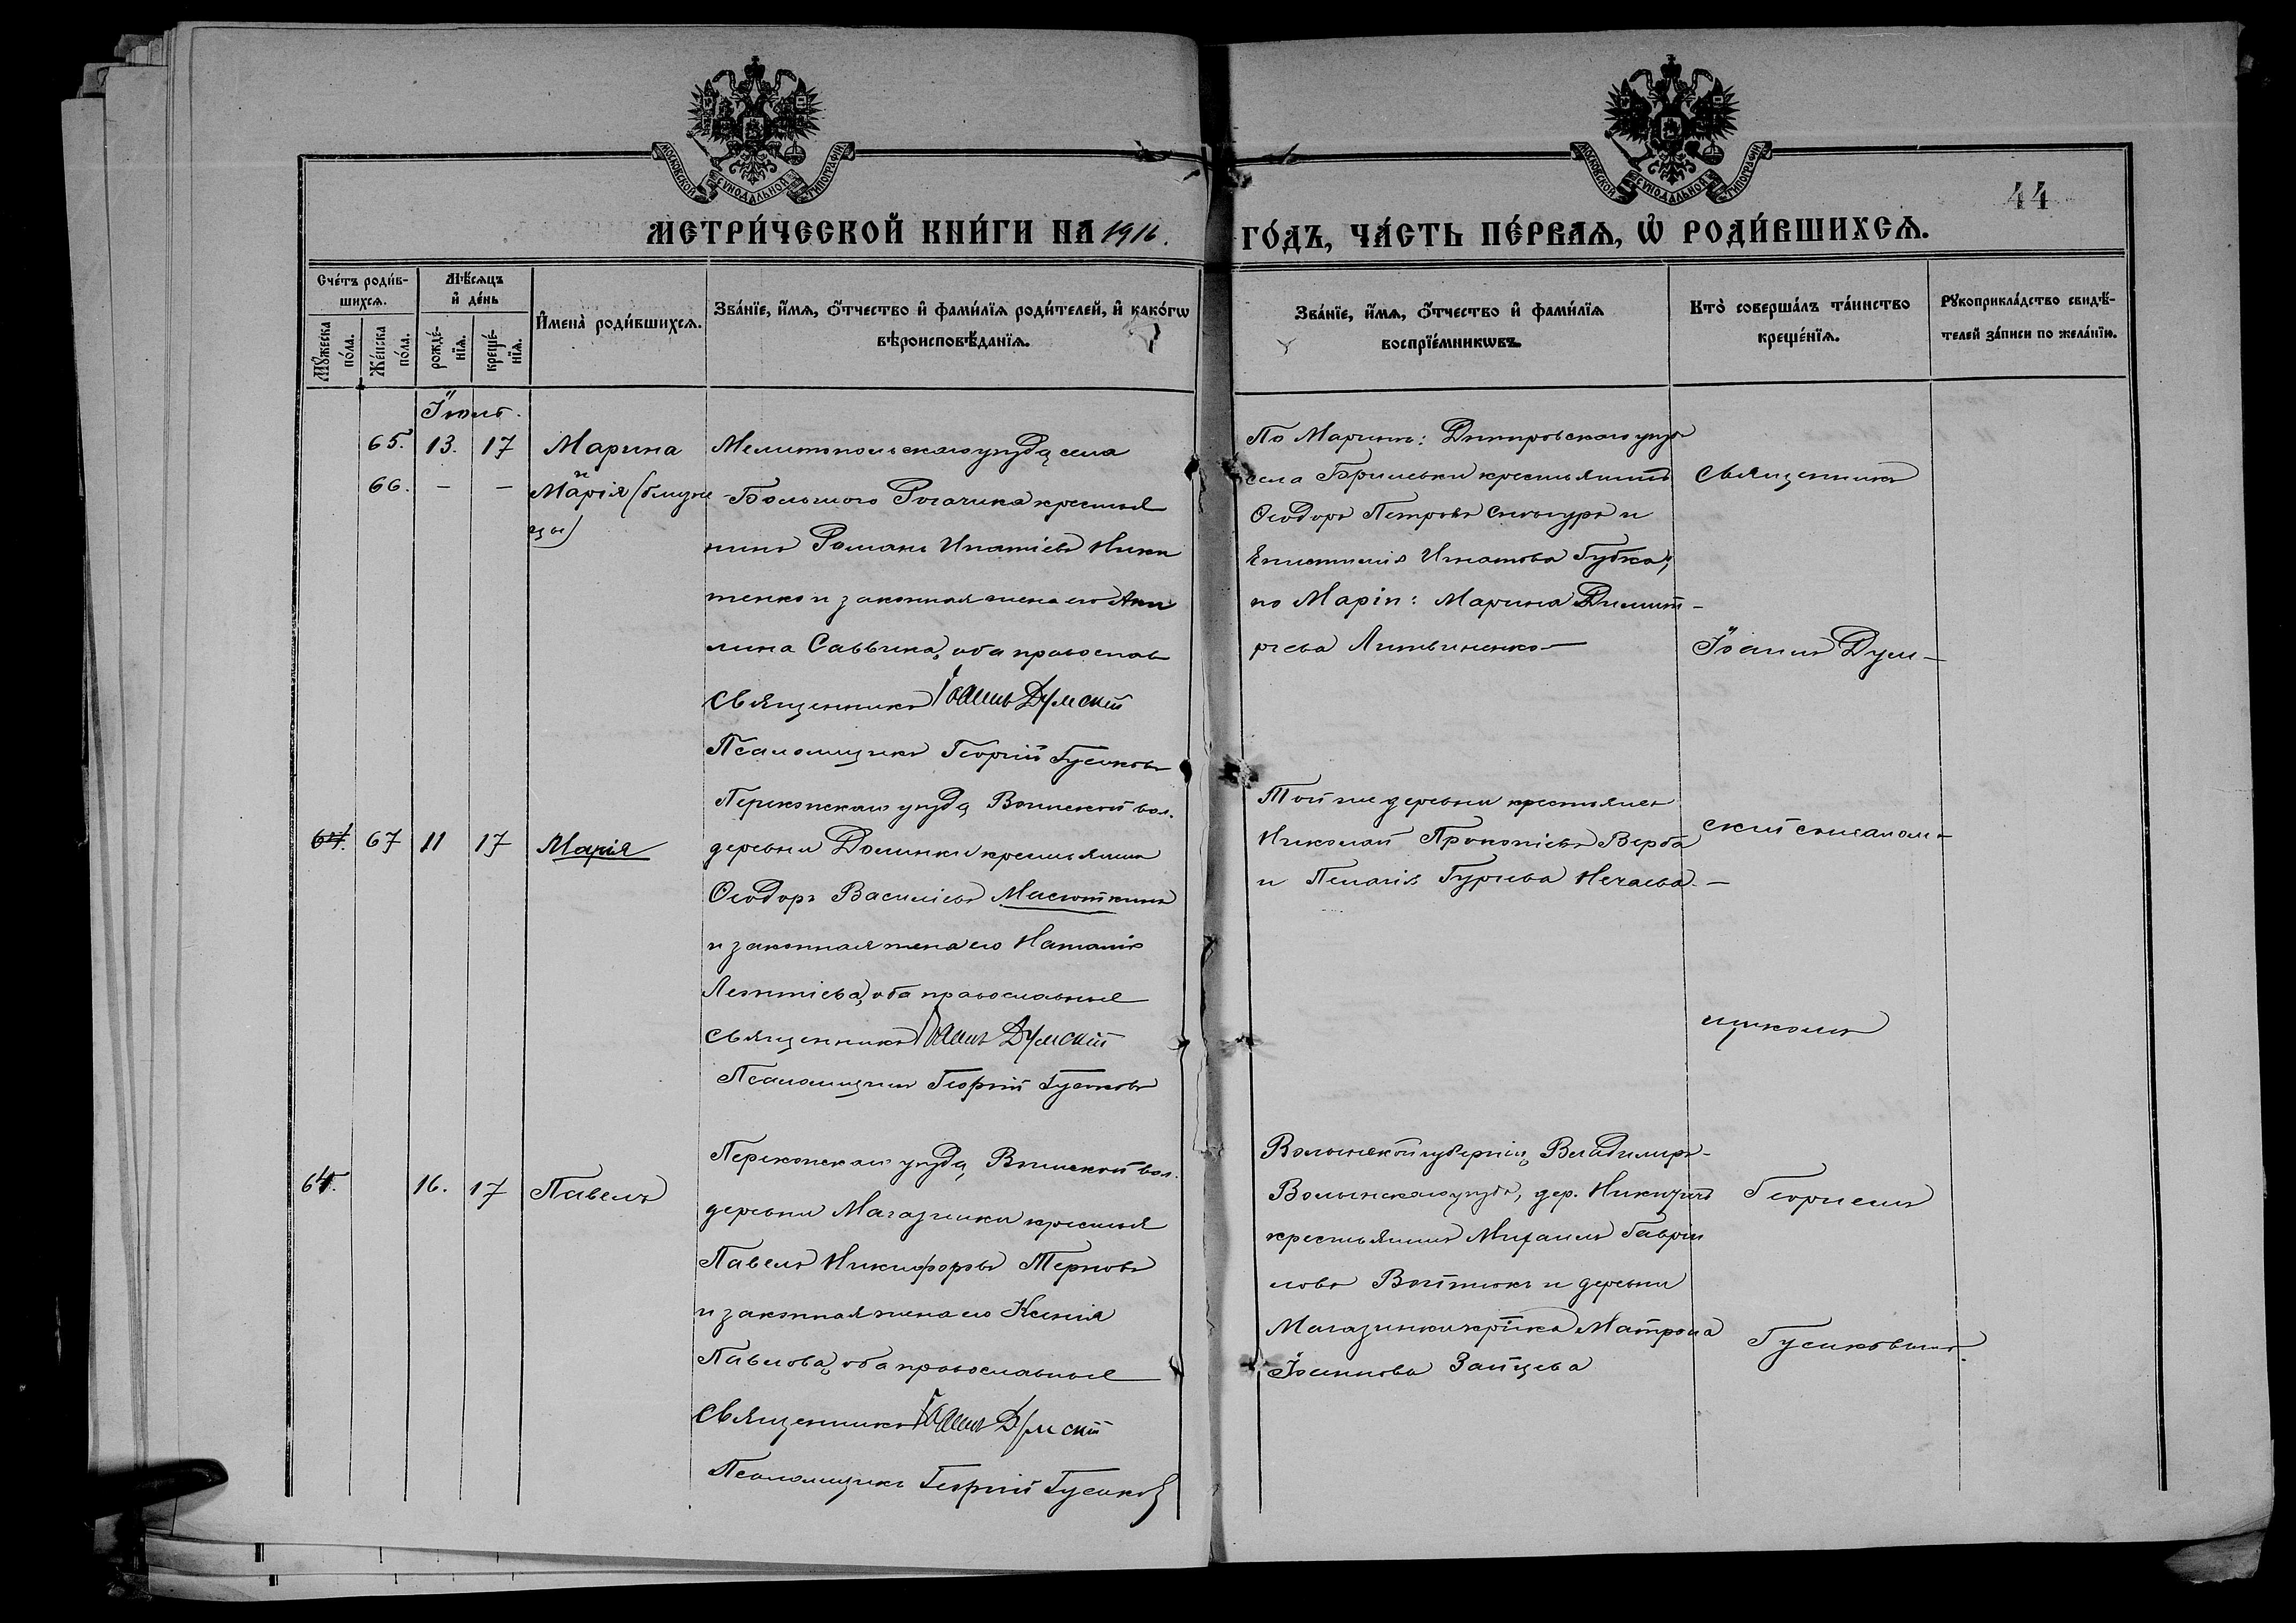 МОСКОВСКОЙ СѴНОДАЛЬНОЙ ТИПОГРАФІИ
МОСКОВСКОЙ СѴНОДАЛЬНОЙ ТИПОГРАФІИ
44
МЕТРИ́ЧЕСКОЙ КНИ́ГИ НА 1916.
ГО́ДЪ, ЧА́СТЬ ПЕ́РВАѦ, Ѡ҆ РОДИ́ВШИХСѦ.
Сче́тъ роди́в-
шихсѧ.
Мꙋ́жеска по́ла.
Же́нска по́ла.
Мѣ́сѧцъ
и҆ де́нь
рожде́-
нїѧ.
креще́-
нїѧ.
И҆мена̀ роди́вшихсѧ.
Зва́нїе, и҆́мѧ, ѻ҆́тчество и҆ фами́лїѧ роди́телей, и҆ како́гѡ
вѣроисповѣ́данїѧ.
Зва́нїе, и҆́мѧ, ѻ҆́тчество и҆ фами́лїѧ
воспрїе́мникѡвъ.
Кто̀ соверша́лъ та́инство
креще́нїѧ.
Рꙋкоприкла́дство свидѣ́-
телей за́писи по жела́нїю.
Іюль.
65. 13. 17 Марина
и
66. — — Марія (близне
цы)
Мелитопольскаго уѣзда, села
Большого Рогачика крестья
нинъ Романъ Ипатіевъ Ники
тенко и законная жена его Аки
лина Саввина, оба православ
Священникъ Іоаннъ Думскій
Псаломщикъ Георгій Гусаковъ
По Маринѣ: Днѣпровскаго уѣзда
села Брилевки крестьянинъ
Ѳеодоръ Петровъ и
Игнатова Губка;
по Маріи: Марина Димит-
ріева Литвиненко —
Священникъ
Іоаннъ Дум-
64. 67 11 17 Марія
Перекопскаго уѣзда, Воинской вол.
деревни Долинки крестьянинъ
Ѳеодоръ Василіевъ Масюткинъ
и законная жена его Наталія
Леонтіева, оба православные
Священникъ Іоаннъ Думскій
Псаломщикъ Георгій Гусаковъ
Той же деревни крестьяне
Николай Прокопіевъ Верба
и Пелагія Гуріева Нечаева. —
скій съ псалом-
щикомъ
64. 16. 17 Павелъ
Перекопскаго уѣзда, Воинской вол.
деревни Магазинки крестья
Павелъ Никифоровъ Терновъ
и законная жена его Ксенія
Павлова, оба православные
Священникъ Іоаннъ Думскій
Псаломщикъ Георгій Гусаковъ
Волынской губерніи, Владимиръ-
Волынскаго уѣзда, дер. Никичичъ
крестьянинъ Михаилъ Гавріи
ловъ Войтюкъ и деревни
Магазинки кр-нка Матрона
Іоаннова Зайцева
Георгіемъ
Гусаковымъ.